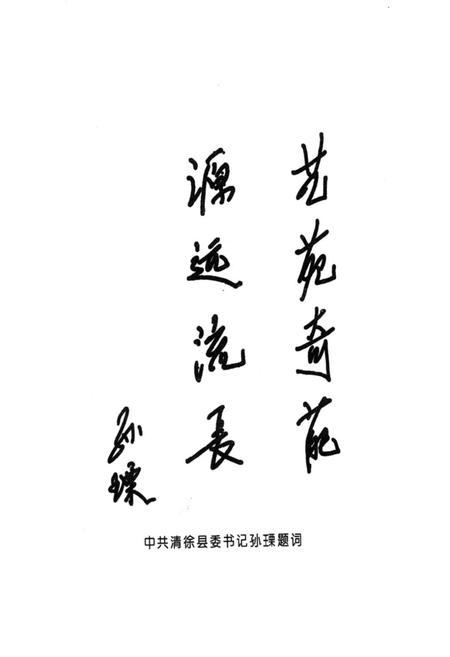 艺苑奇葩
源远流长
孙璟
中共清徐县委书记孙璟题词